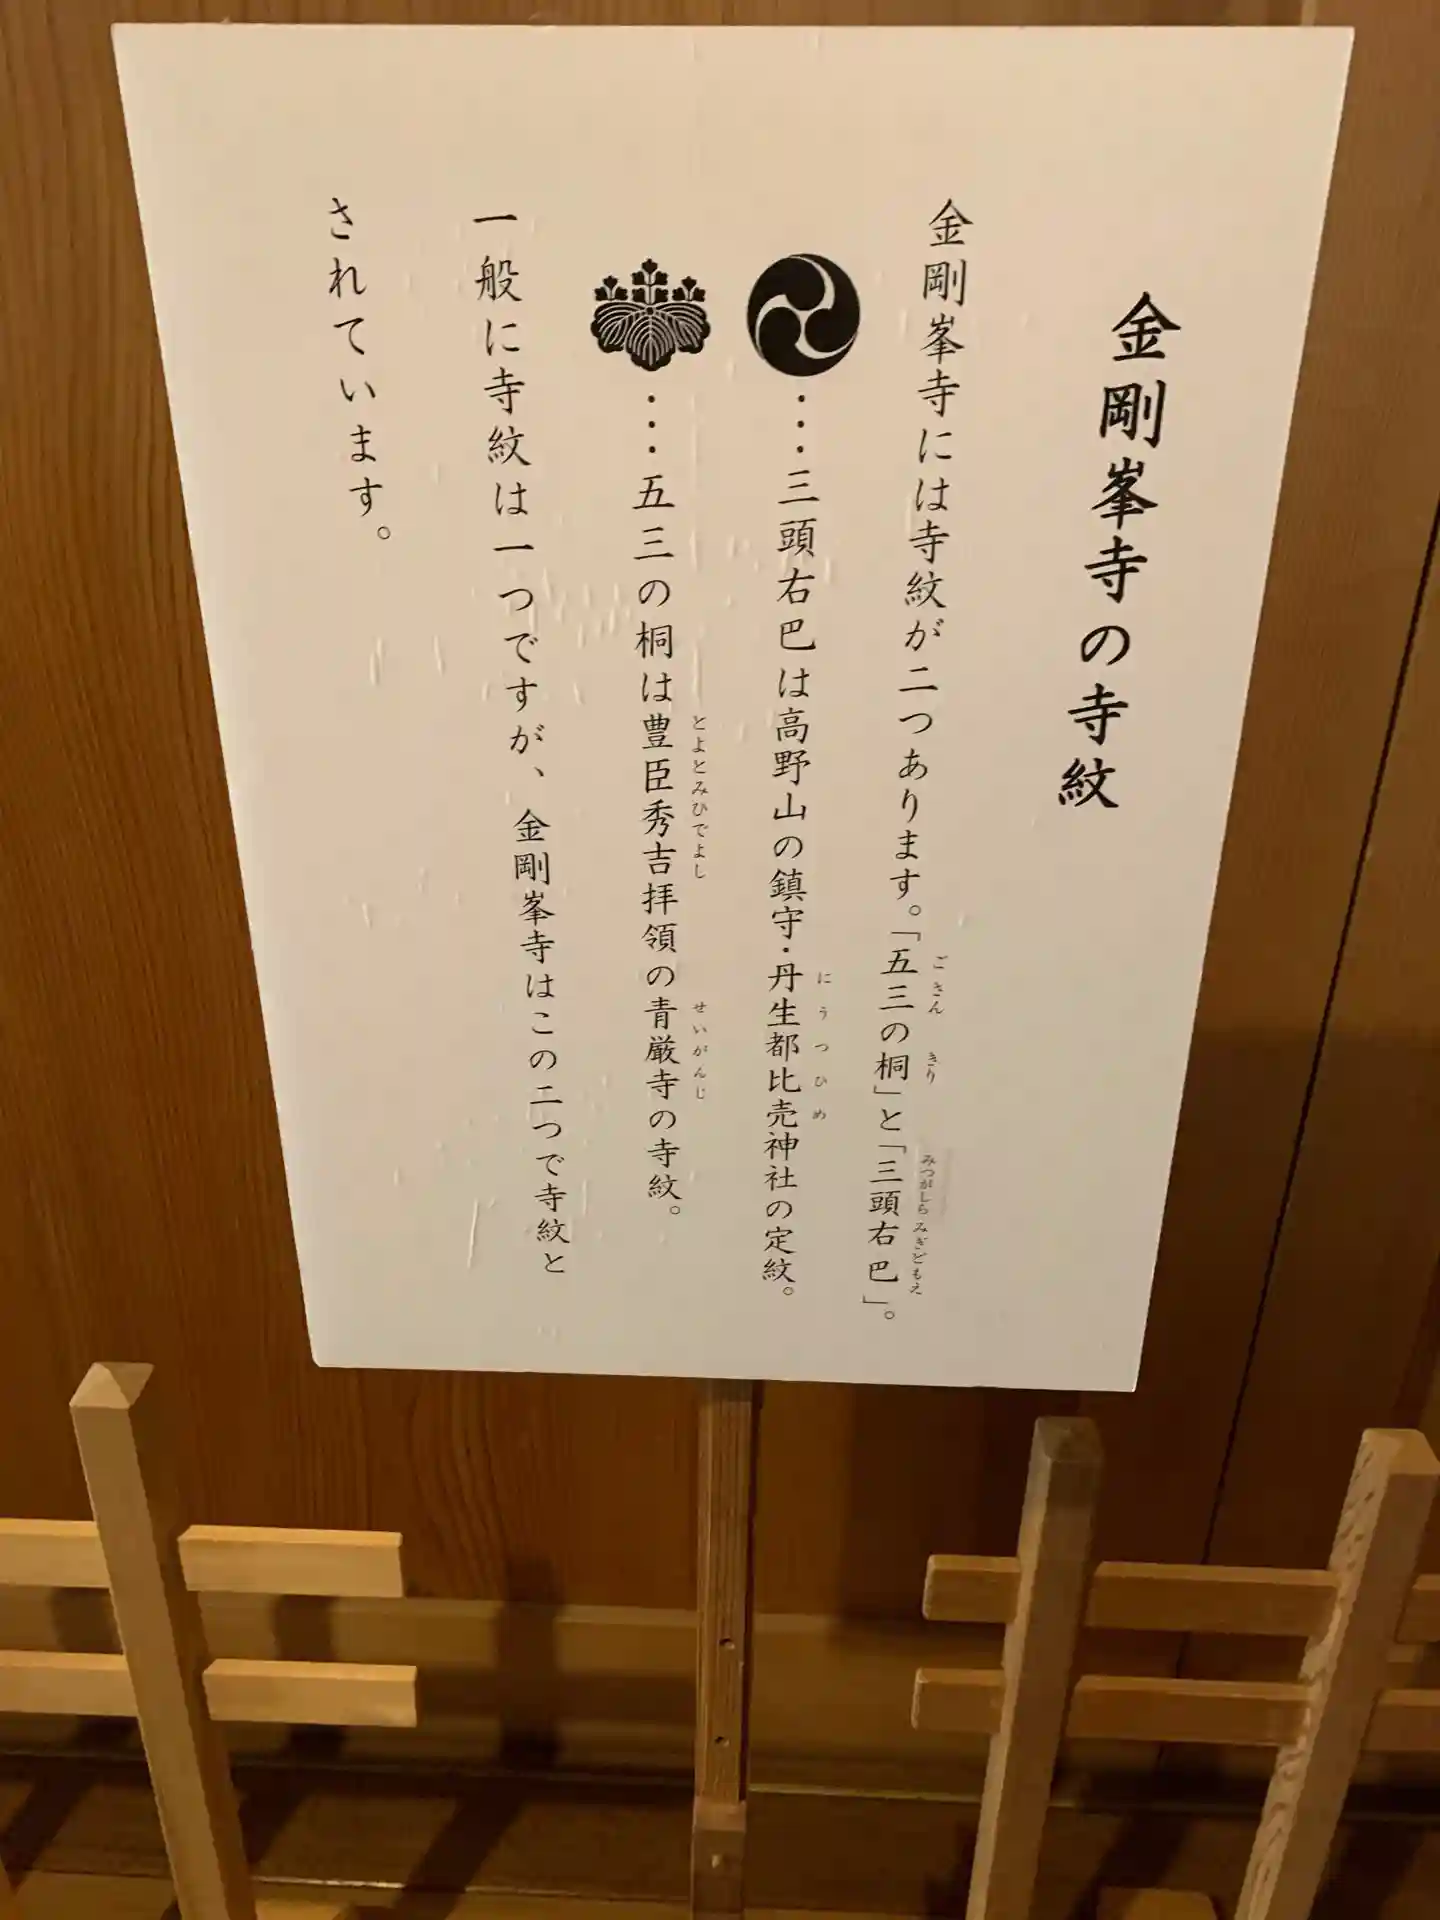 金剛峯寺の寺紋
金剛峯寺には寺紋が二つあります。「五三の桐」と「三頭右巴」。
ごさん きり みつがしら みぎどもえ
・・・三頭右巴は高野山の鎮守・丹生都比売神社の定紋。
にうつひめ
・・・五三の桐は豊臣秀吉拝領の青厳寺の寺紋。
とよとみひでよし せいがんじ
一般に寺紋は一つですが、金剛峯寺はこの二つで寺紋と
されています。